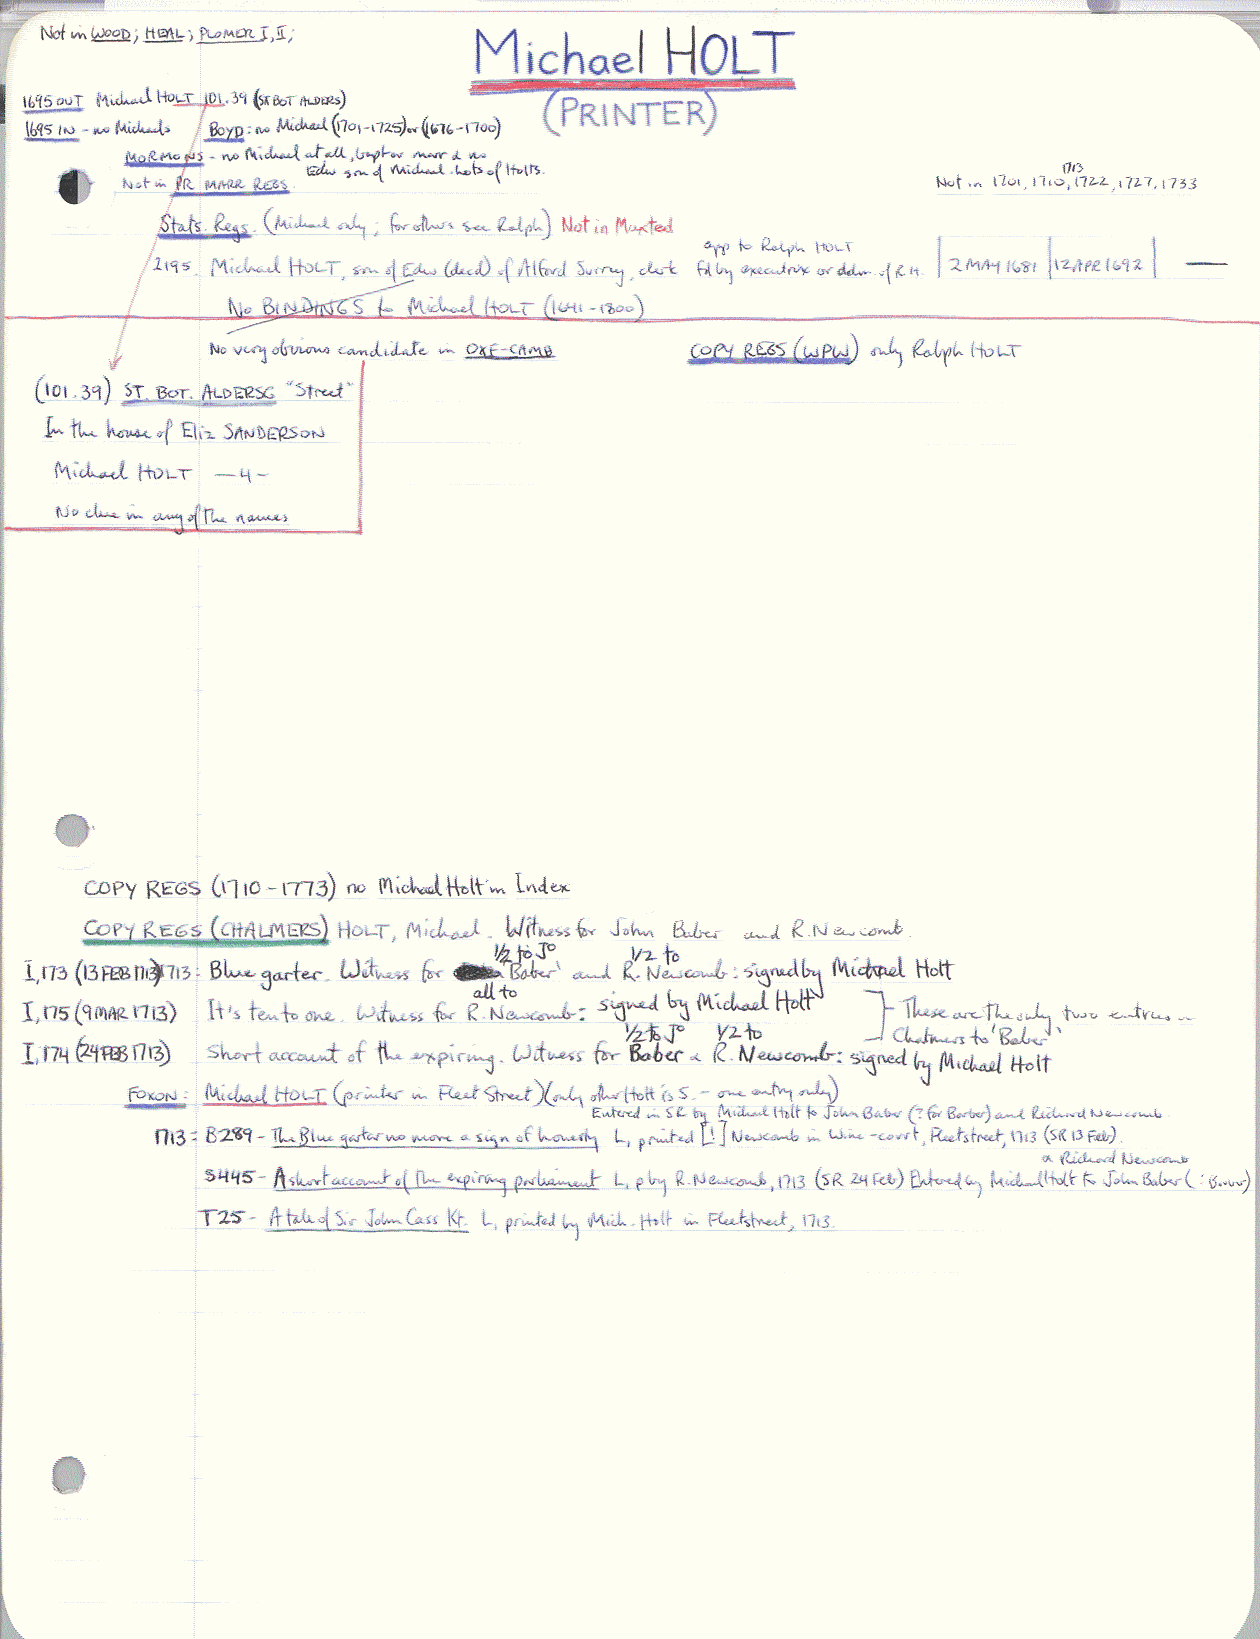 Not in WOOD; HEAL; PLOMER I, II;
Michael HOLT
(PRINTER)
1695 OUT Michael HOLT 101.39 (ST BOT ALDERS)
1695 IN - no Michaels BOYD: no Michael (1701-1725) or (1676-1700)
MORMONS - no Michael at all, bapt or marr & no
Edw son of Michael. Lots of Holts.
Not in PR MARR REGS.
1713
Not in 1701, 1710, 1722, 1727, 1733
Stats. Regs. (Michael only; for others see Ralph) Not in Maxted
app to Ralph HOLT
2195. Michael HOLT, son of Edw (decd) of Alford Surrey, clerk fd by executrix or admr. of R.H. 2 MAY 1681 12 APR 1692 —
No BINDINGS to Michael HOLT (1641-1800)
No very obvious candidate in OXF-CAMB COPY REGS (WPW) only Ralph HOLT
(101.39) ST. BOT. ALDERSG "Street"
In the house of Eliz SANDERSON
Michael HOLT —4-
No clue in any of the names
COPY REGS (1710-1773) no Michael Holt in Index
COPY REGS (CHALMERS) HOLT, Michael. Witness for John Baber and R. Newcomb.
1/2 to Jo 1/2 to
I, 173 (13 FEB 1713) 1713: Blue garter. Witness for Baber' and R. Newcomb: signed by Michael Holt
all to
I, 175 (9 MAR 1713) It's ten to one. Witness for R. Newcomb: signed by Michael Holt These are the only two entries in
1/2 to Jo 1/2 to Chalmers to 'Baber'
I, 174 (24 FEB 1713) Short account of the expiring. Witness for Baber & R. Newcomb: signed by Michael Holt
FOXON: Michael HOLT (printer in Fleet Street) (only other Holt is S. - one entry only)
Entered in SR by Michael Holt to John Baber (? for Barber) and Richard Newcomb
1713: B289 - The Blue garter no more a sign of honesty L, printed [!] Newcomb in Wine-court, Fleetstreet, 1713 (SR 13 Feb).
& Richard Newcomb
S445 - A short account of the expiring parliament L, p by R. Newcomb, 1713 (SR 24 Feb) Entered by Michael Holt to John Baber (: Barber)
T25 - A tale of Sir John Cass Kt. L, printed by Mich. Holt in Fleetstreet, 1713.